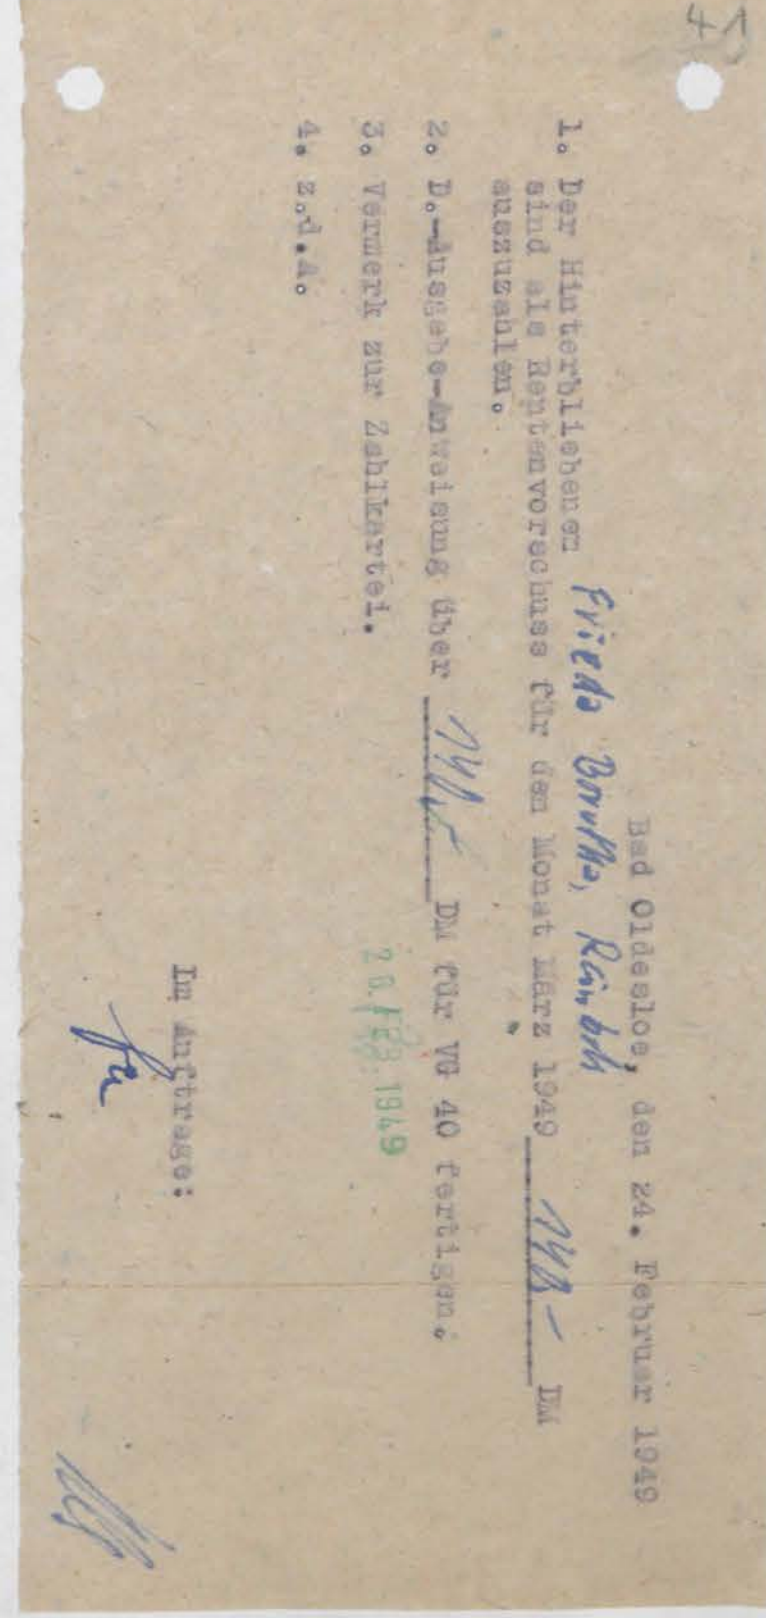 Bad Oldesloe, den 24. Februar 1949
1. Der Hinterbliebenen Frieda
sind als Rentenvorschuss für den Monat März 1949 DM
auszuzahlen.
2. D.-Ausgabe-Anweisung über DM für VG 40 fertigen.
3. Vermerk zur Zahlkartei.
4. z.d.A.
FEB. 1949
Im Auftrage: